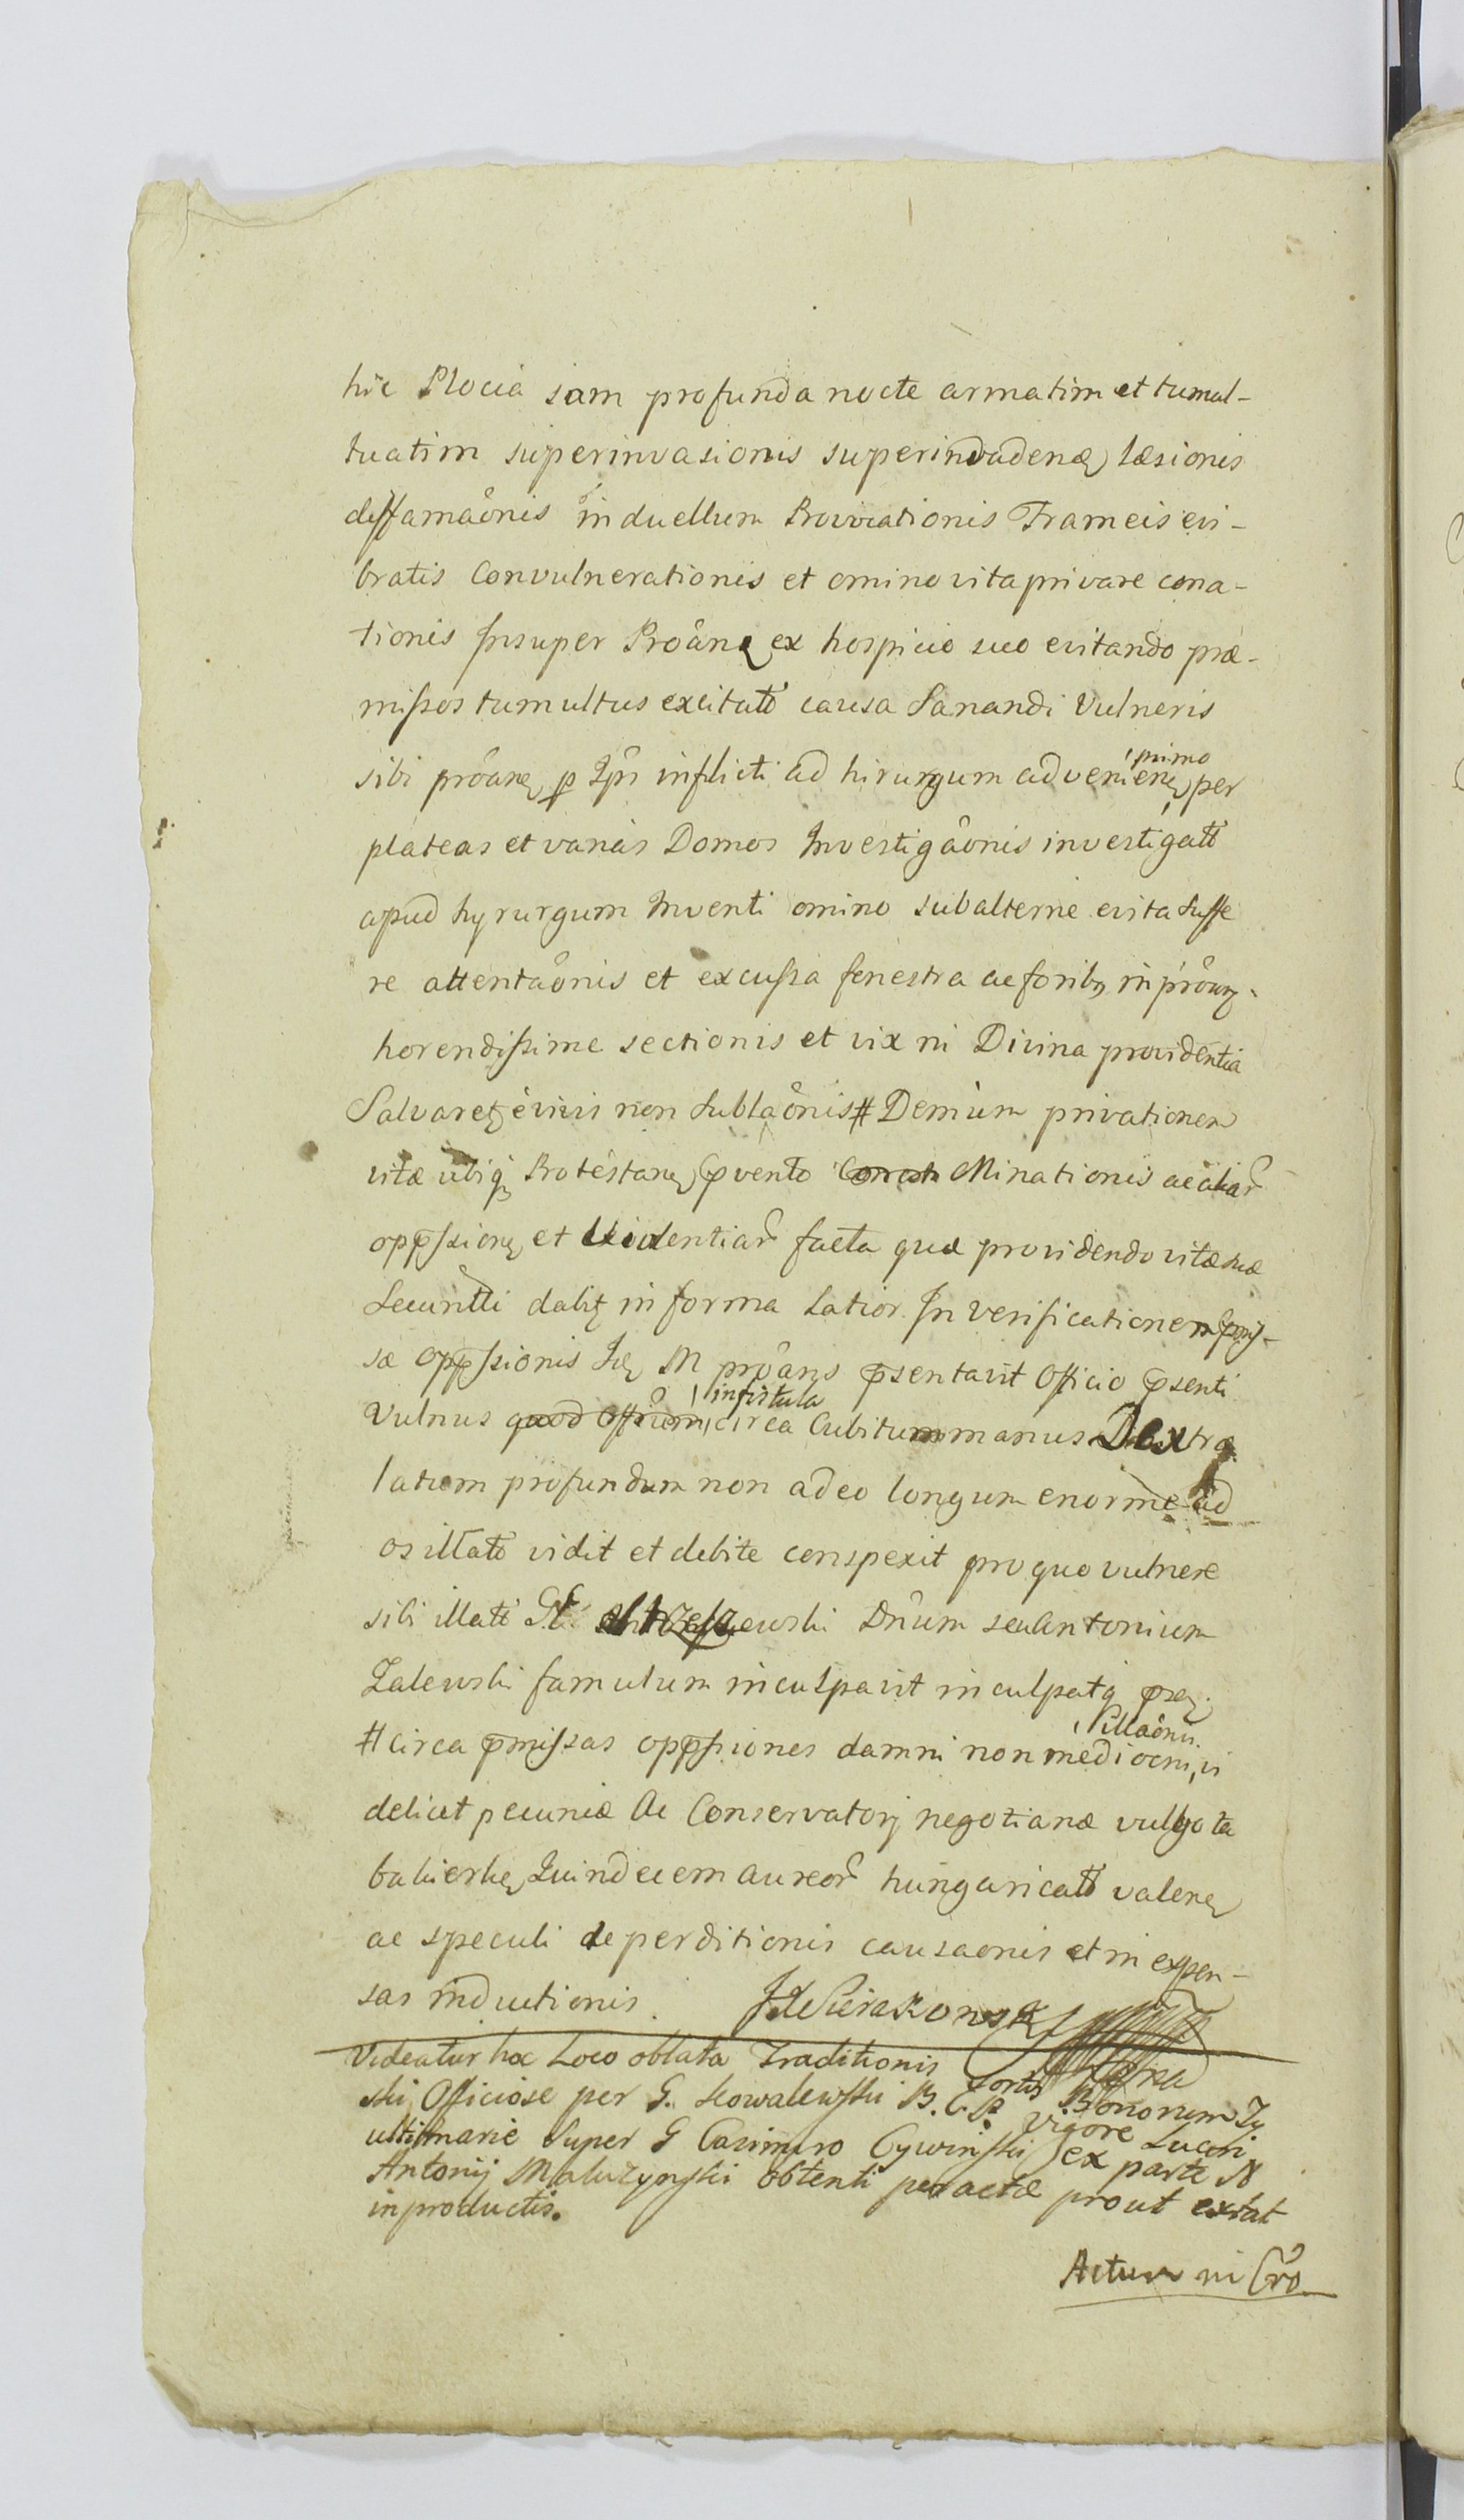 hic Plociæ jam profunda nocte armatim et tumul-
tuatim superinvasionis superinvadenꝫ læsionis
diffamaônis in duellum Provocationis Frameis evi-
bratis Convulnerationis et omino vita privare cona-
tionis Insuper Proânꝫ ex hospicio suo evitando præ-
missos tumultus excitatt causa Sanandi Vulneris
sibi proânꝫ inflicti ad hirurgum advenienꝫ primo per
plateas et varias Domos Investigâonis investigatt
apud hyrurgum Inventi omino subalterne e vita suffe
re attentâonis et excussa fenestra ac foribꝫ in
horendissime sectionis et vix ni Divina providentia
Salvaretꝫ è vivis non sublâonis # Demùm privationem
vitæ ubiqꝫ Protestanꝫ Minationis ac aliar
oppssionꝫ et Violentiar facta quæ providendo vitæ suæ
Securitti dabitꝫ in forma Latior. In verificationem
sæ oppssionis Idꝫ M proâns psentavit Officio psenti
Vulnus quod Offium infistula circa Cubitum manus Dextræ
latum profundum non adeo longum enorme ad
os illatt vidit et debite conspexit pro quo vulnere
sibi illatt Dnûm seu Antonium
Zalewski famulum inculpavit inculpatqꝫ
# circa pmissas oppssiones damni non mediocris, illaônis vi
delicet pecuniæ Ac Conservatorij negotianæ vulgo ta
bakierkę Quindecem aureor hungaricatt valenꝫ
ac speculi deperditionis causaonis et in expen-
sas inductionis. Sierakowski
Videatur hoc Loco oblata Traditionis
ski Officiose per G. Kowalewski B. C. P. Sortis Bonorum Zy
ultimarie Super G Casimiro Cywinski vigore Lucri
Antonij Maluzynski obtenti peractæ ex parte N
in productis. prout extat
Actum in Cro